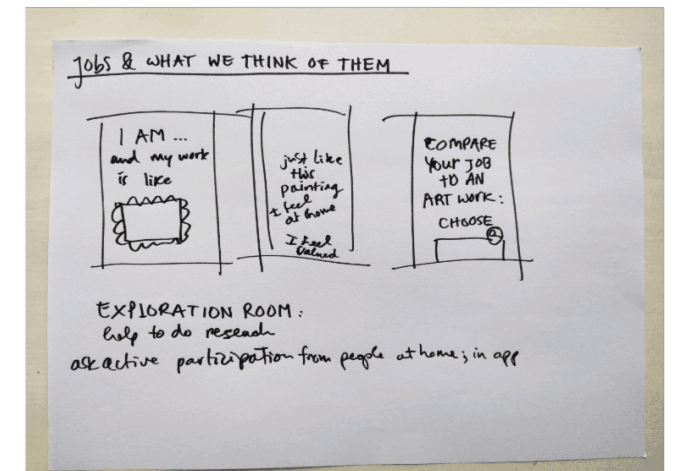 JOBS & WHAT WE THINK OF THEM
I AM ...
and my work
is like
just like
this
painting
I feel
at home
I feel
valued
COMPARE
YOUR JOB
TO AN
ART WORK:
CHOOSE
EXPLORATION ROOM:
help to do reseach
ask active participation from people at home; in app